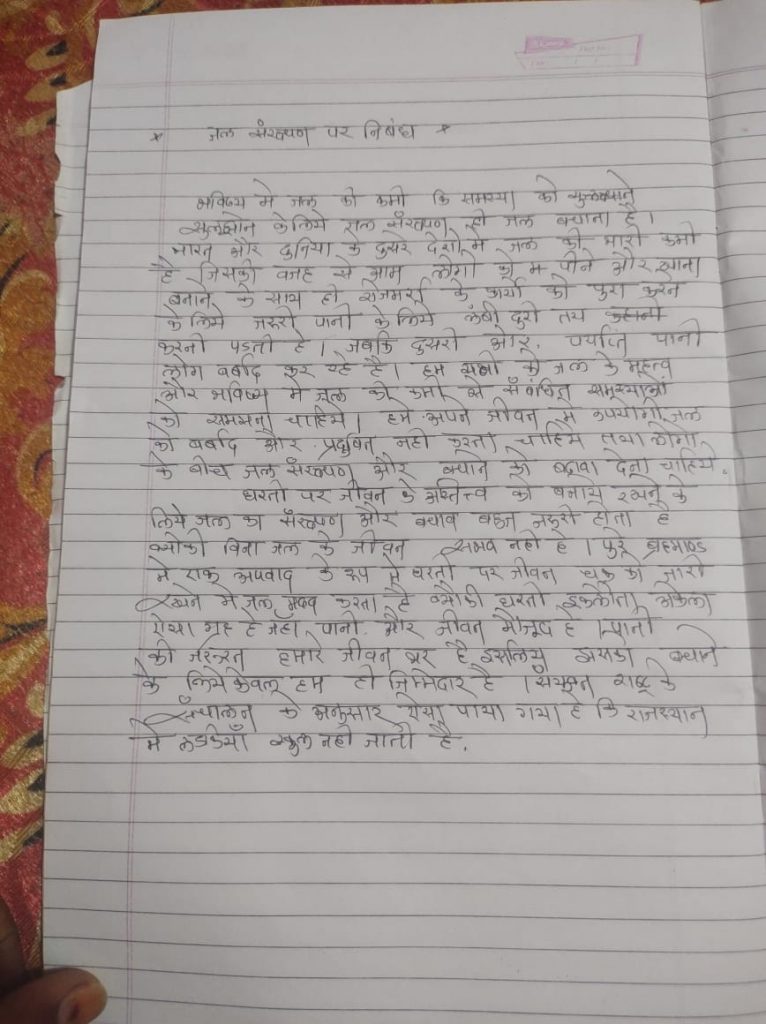 * जल संरक्षण पर निबंध *
भविष्य मे जल की कमी कि समस्या को
के लिये जल संरक्षण ही जल बचाना है।
भारत और दुनिया के दुसरे देशो मे जल की भारी कमी
है जिसकी वजह से आम लोगो को पीने और खाना
बनाने के साथ ही रोजमर्रा के कार्यो को पुरा करने
के लिये जरूरी पानी के लिये लंबी दुरी तय
करनी पडती है। जबकि दुसरी ओर, पर्याप्त पानी
लोग बर्बाद कर रहे है। हम सभी को जल के महत्व
और भविष्य मे जल की कमी से संबंधित समस्याओ
को समझना चाहिये। हमे अपने जीवन मे उपयोगी जल
को बर्बाद और प्रदुषित नही करना चाहिये तथा लोगो
के बीच जल संरक्षण और बचाने को बढावा देना चाहिये.
धरती पर जीवन के अस्तित्व को बनाये रखने के
लिये जल का संरक्षण और बचाव बहुत जरूरी होता है
क्योकी बिना जल के जीवन संभव नही है। पुरे ब्रम्हाण्ड
मे एक अपवाद के रूप मे धरती पर जीवन चक्र को जारी
रखने मे जल मदद करता है क्योकी धरती इकलौता अकेला
ऐसा ग्रह है जहाँ पानी और जीवन मौजुद है। पानी
की जरूरत हमारे जीवन भर है इसलिए इसको बचाने
के लिये केवल हम ही जिम्मेदार है। संयुक्त राष्ट्र के
संचालन के अनुसार ऐसा पाया गया है कि राजस्थान
मे लडकियाँ स्कुल नही जाती है.